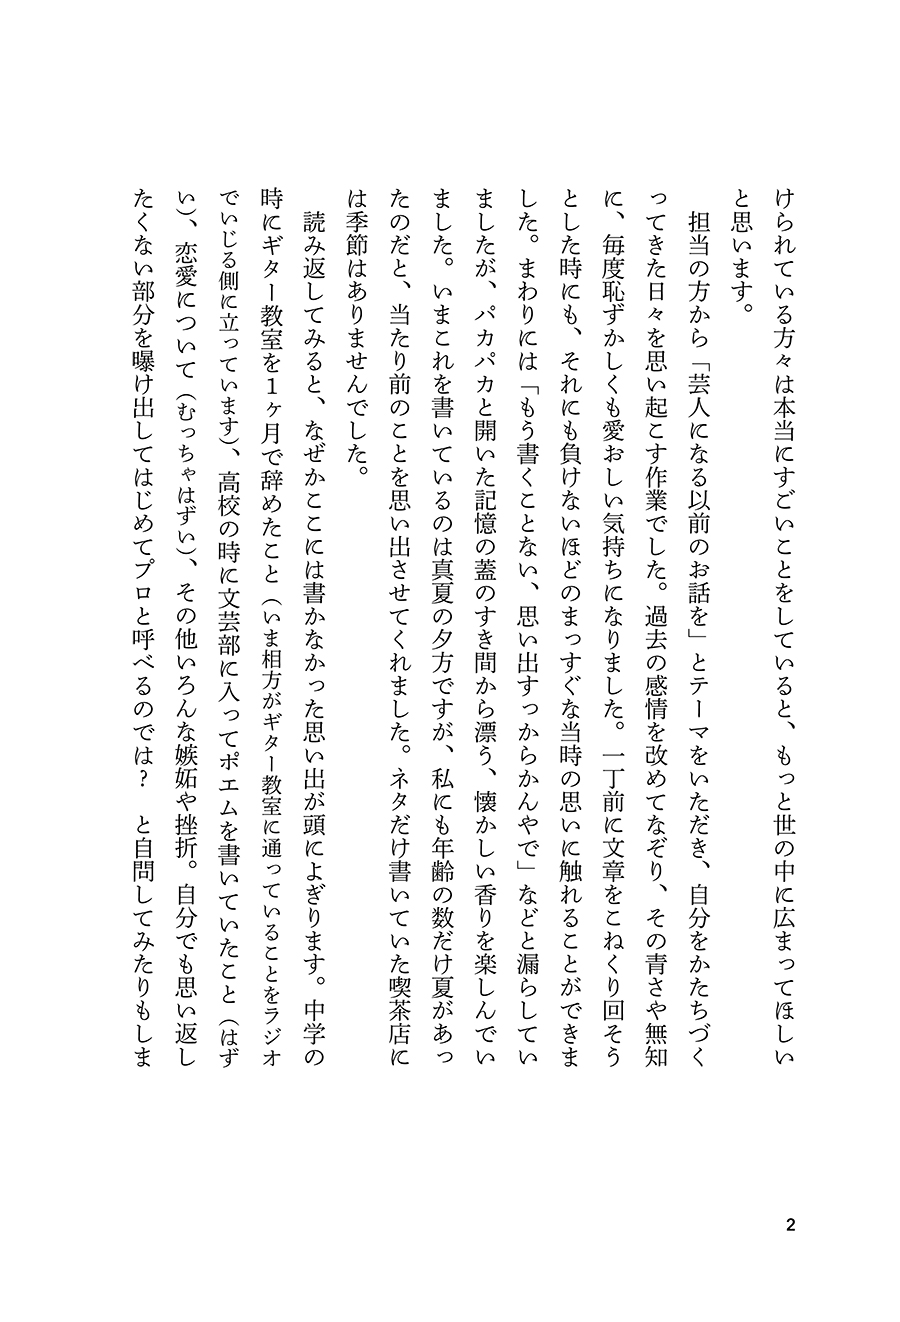 けられている方々は本当にすごいことをしていると、もっと世の中に広まってほしい
と思います。
　担当の方から「芸人になる以前のお話を」とテーマをいただき、自分をかたちづく
ってきた日々を思い起こす作業でした。過去の感情を改めてなぞり、その青さや無知
に、毎度恥ずかしくも愛おしい気持ちになりました。一丁前に文章をこねくり回そう
とした時にも、それにも負けないほどのまっすぐな当時の思いに触れることができま
した。まわりには「もう書くことない、思い出すっからかんやで」などと漏らしてい
ましたが、パカパカと開いた記憶の蓋のすき間から漂う、懐かしい香りを楽しんでい
ました。いまこれを書いているのは真夏の夕方ですが、私にも年齢の数だけ夏があっ
たのだと、当たり前のことを思い出させてくれました。ネタだけ書いていた喫茶店に
は季節はありませんでした。
　読み返してみると、なぜかここには書かなかった思い出が頭によぎります。中学の
時にギター教室を1ヶ月で辞めたこと（いま相方がギター教室に通っていることをラジオ
でいじる側に立っています）、高校の時に文芸部に入ってポエムを書いていたこと（はず
い）、恋愛について（むっちゃはずい）、その他いろんな嫉妬や挫折。自分でも思い返し
たくない部分を曝け出してはじめてプロと呼べるのでは？　と自問してみたりもしま
2